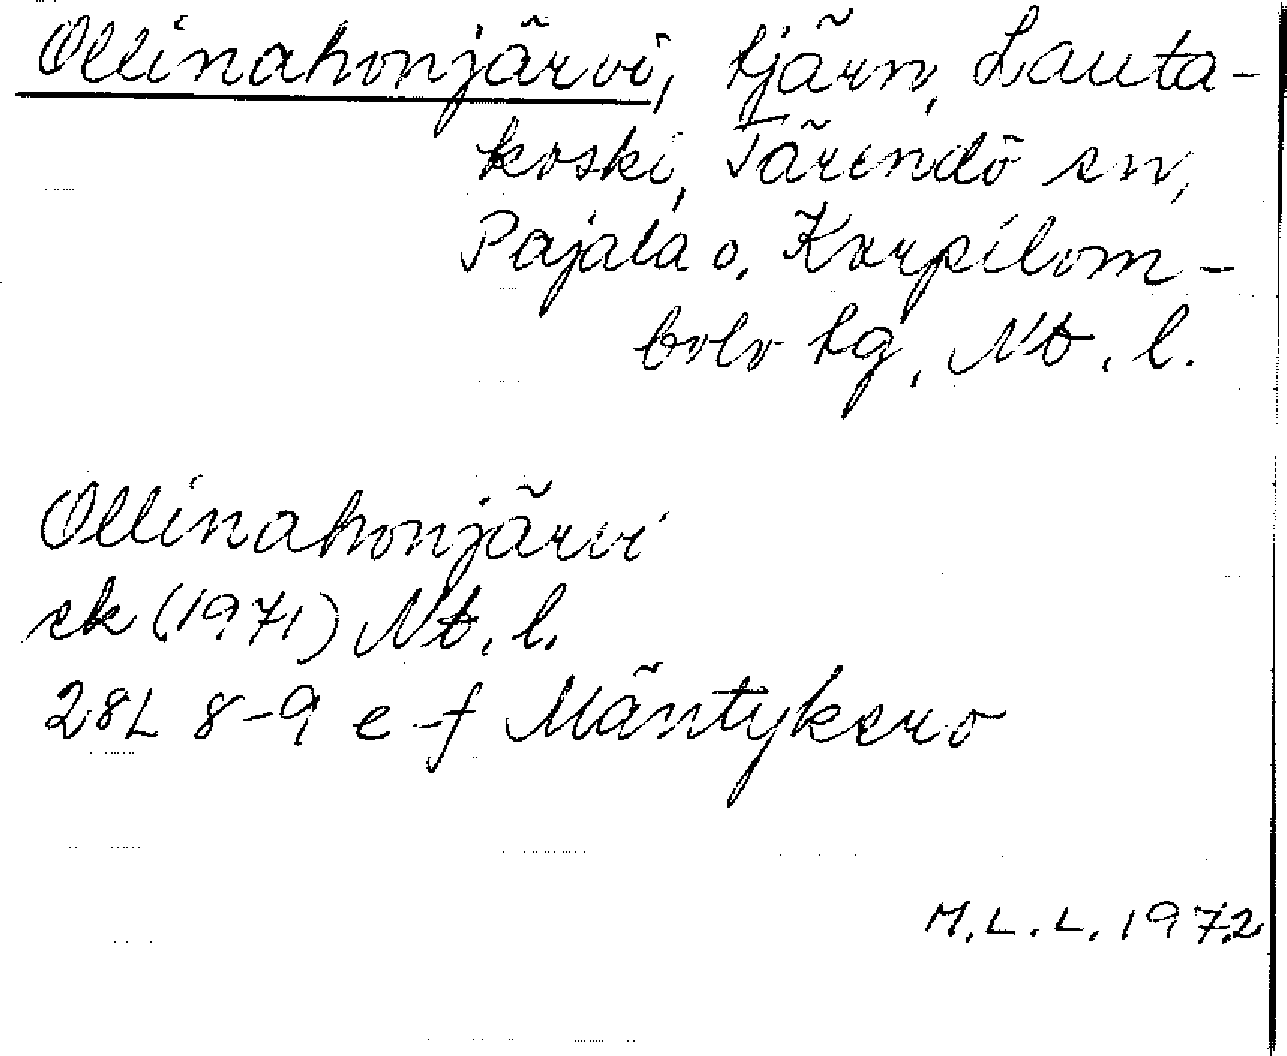 Ollinahonjärvi, tjärn, Lauta-
koski, Tärendö sn,
Pajala o. Korpilom-
bolo tg, Nb. l.
Ollinahonjärvi
ek (1971) Nb. l.
28L 8-9 e-f Mäntykero
M.L.L. 1972